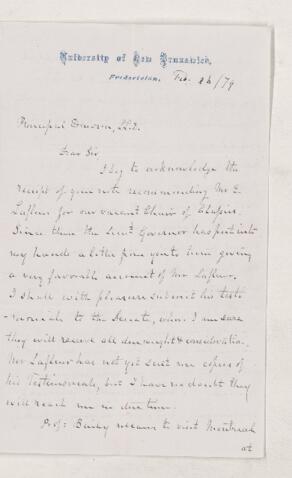 University of New Brunswick,
Fredericton, Feb. 26/79
Principal Dawson, LL.D.
Dear Sir
I beg to acknowledge the
receipt of your note recommending Mr E.
Lafleur for our vacant Chair of Classics.
Since then the Lieut Governor has put into
my hands a letter from you to him giving
a very favorable account of Mr Lafleur.
I shall with pleasure submit his testi-
-monials to the Senate, who I am sure
they will receive all due weight & consideration.
Mr Lafleur has not yet sent me copies of
his Testimonials, but I have no doubt they
will reach me in due time.
Prof: Bailey means to visit Montreal
at